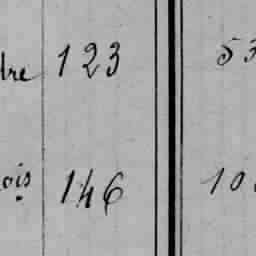 dre 123 53
ois 146 10